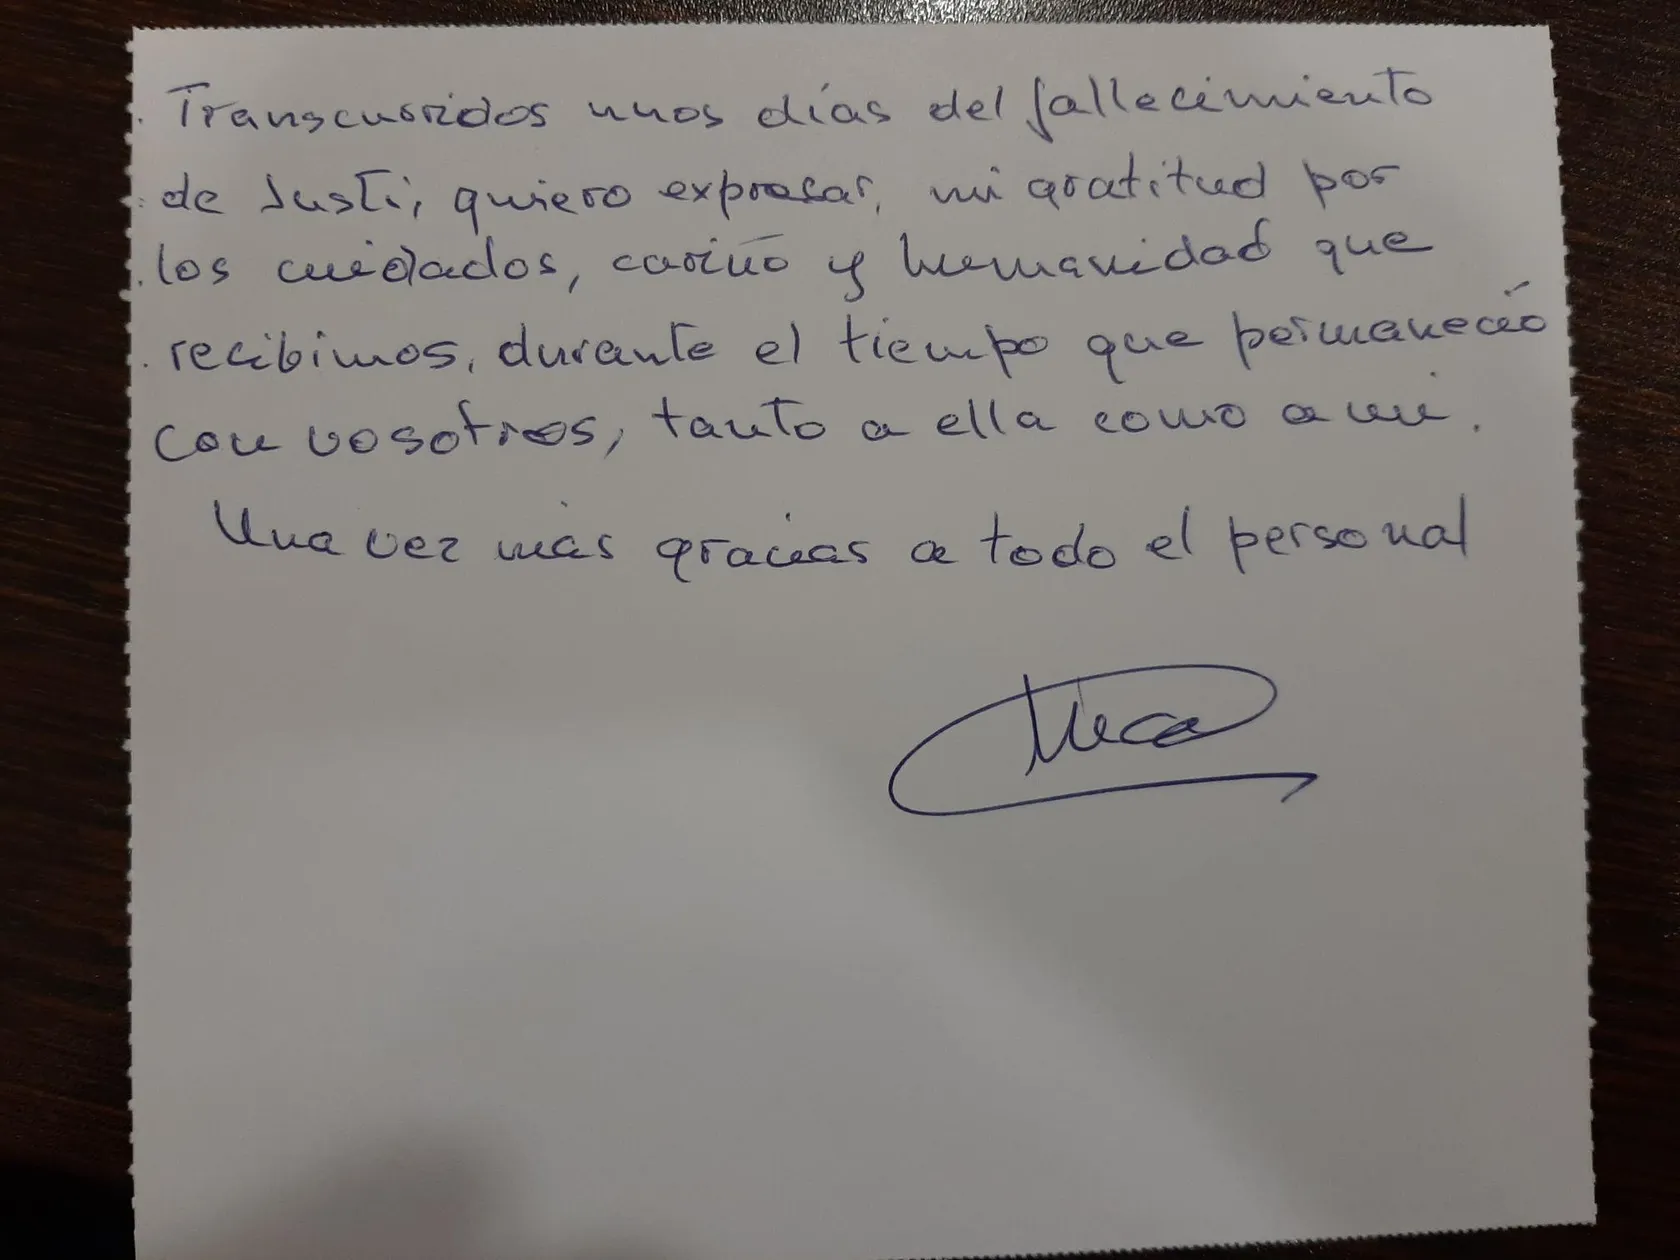 Transcurridos unos días del fallecimiento
de Justi, quiero expresar, mi gratitud por
los cuidados, cariño y humanidad que
recibimos, durante el tiempo que permaneció
con vosotros, tanto a ella como a mi.
Una vez más gracias a todo el personal